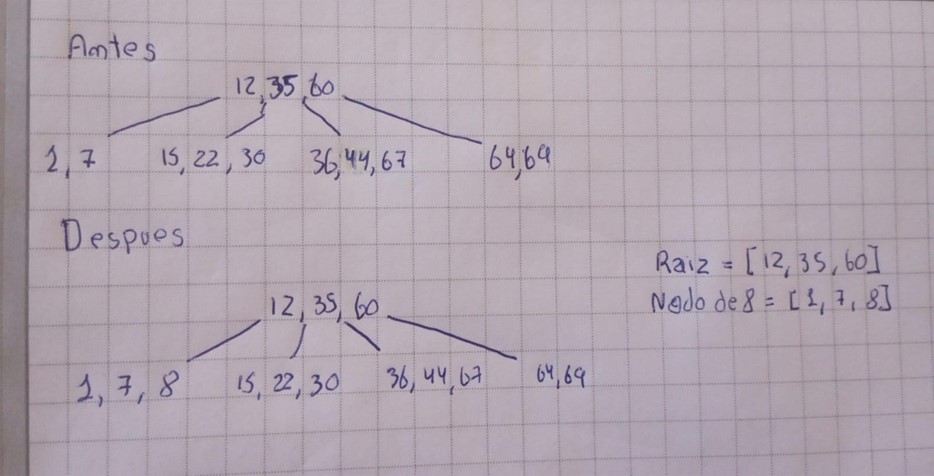 Antes
12,35,60
1,7 15,22,30 36,44,67 64,69
Despues
12,35,60
1,7,8 15,22,30 36,44,67 64,69
Raiz = [12,35,60]
Nodo de 8 = [1,7,8]